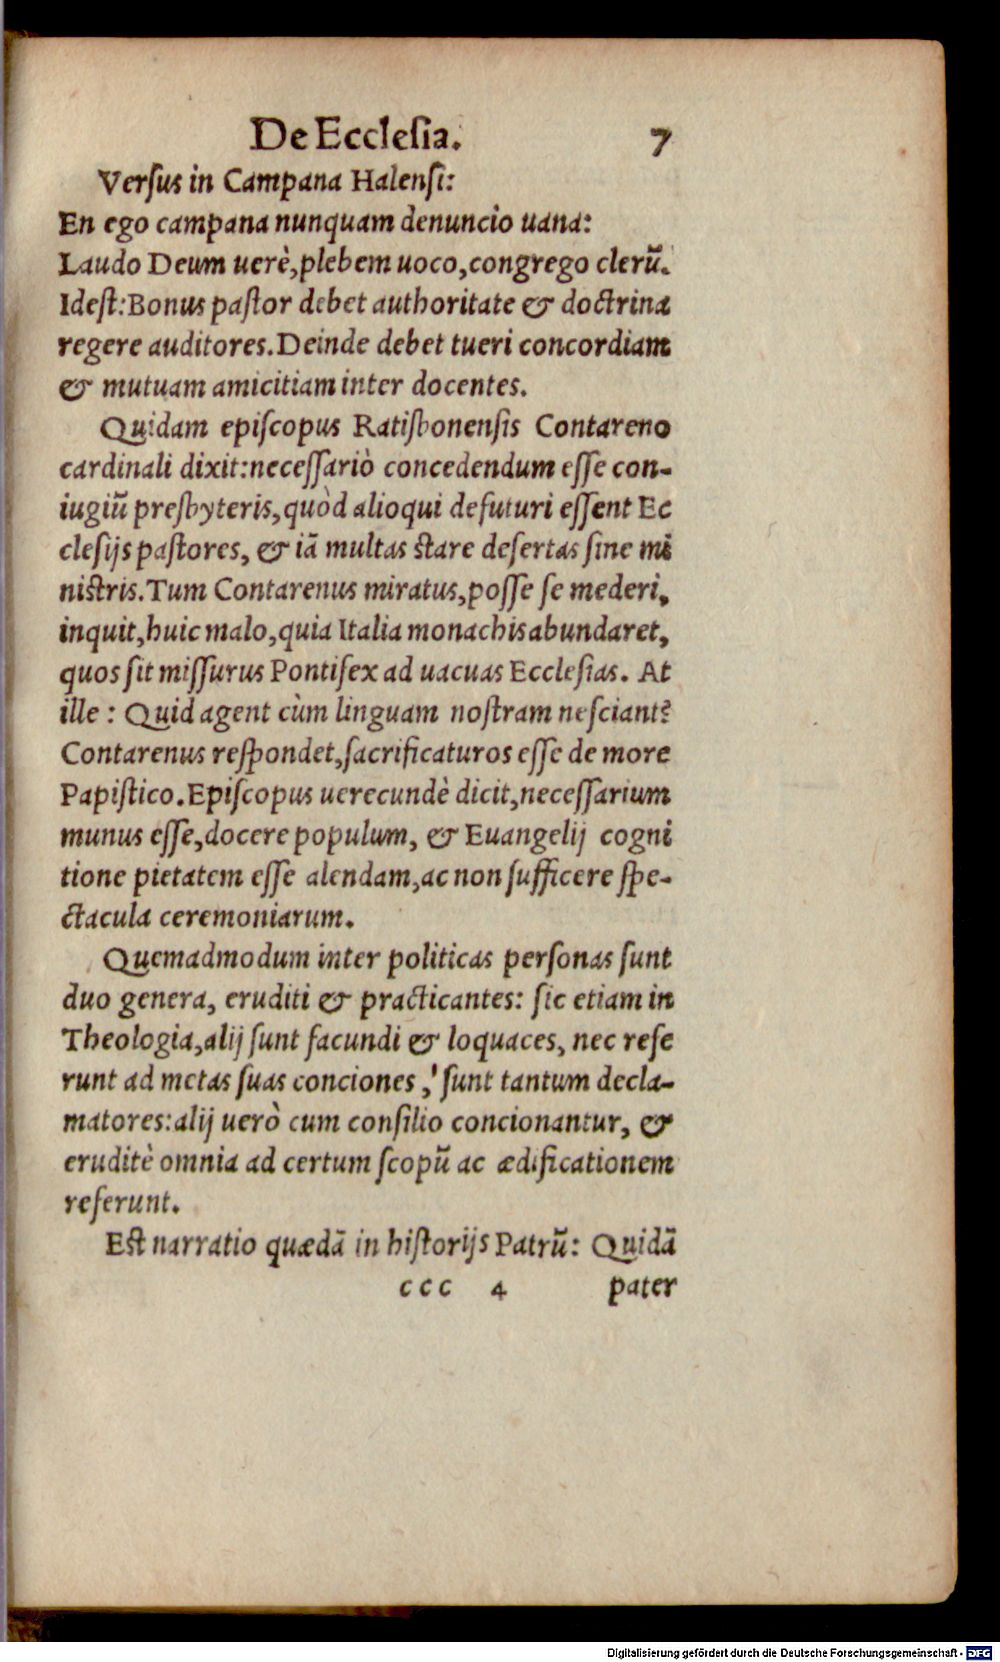 De Ecclesia. 7
Versus in Campana Halensi:
En ego campana nunquam denuncio uana:
Laudo Deum uerè, plebem uoco, congrego clerũ.
Idest: Bonus pastor debet authoritate & doctrina
regere auditores. Deinde debet tueri concordiam
& mutuam amicitiam inter docentes.
Quidam episcopus Ratisbonensis Contareno
cardinali dixit: necessariò concedendum esse con-
iugiũ presbyteris, quòd alioqui defuturi essent Ec
clesijs pastores, & iã multas stare desertas sine mi
nistris. Tum Contarenus miratus, posse se mederi,
inquit, huic malo, quia Italia monachis abundaret,
quos sit missurus Pontifex ad uacuas Ecclesias. At
ille : Quid agent cùm linguam nostram nesciant?
Contarenus respondet, sacrificaturos esse de more
Papistico. Episcopus uerecundè dicit, necessarium
munus esse, docere populum, & Euangelij cogni
tione pietatem esse alendam, ac non sufficere spe-
ctacula ceremoniarum.
Quemadmodum inter politicas personas sunt
duo genera, eruditi & practicantes: sic etiam in
Theologia, alij sunt facundi & loquaces, nec refe
runt ad metas suas conciones, sunt tantum decla-
matores: alij uerò cum consilio concionantur, &
eruditè omnia ad certum scopũ ac ædificationem
referunt.
Est narratio quædã in historijs Patrũ: Quidã
ccc 4 pater
Digitalisierung gefördert durch die Deutsche Forschungsgemeinschaft - DFG